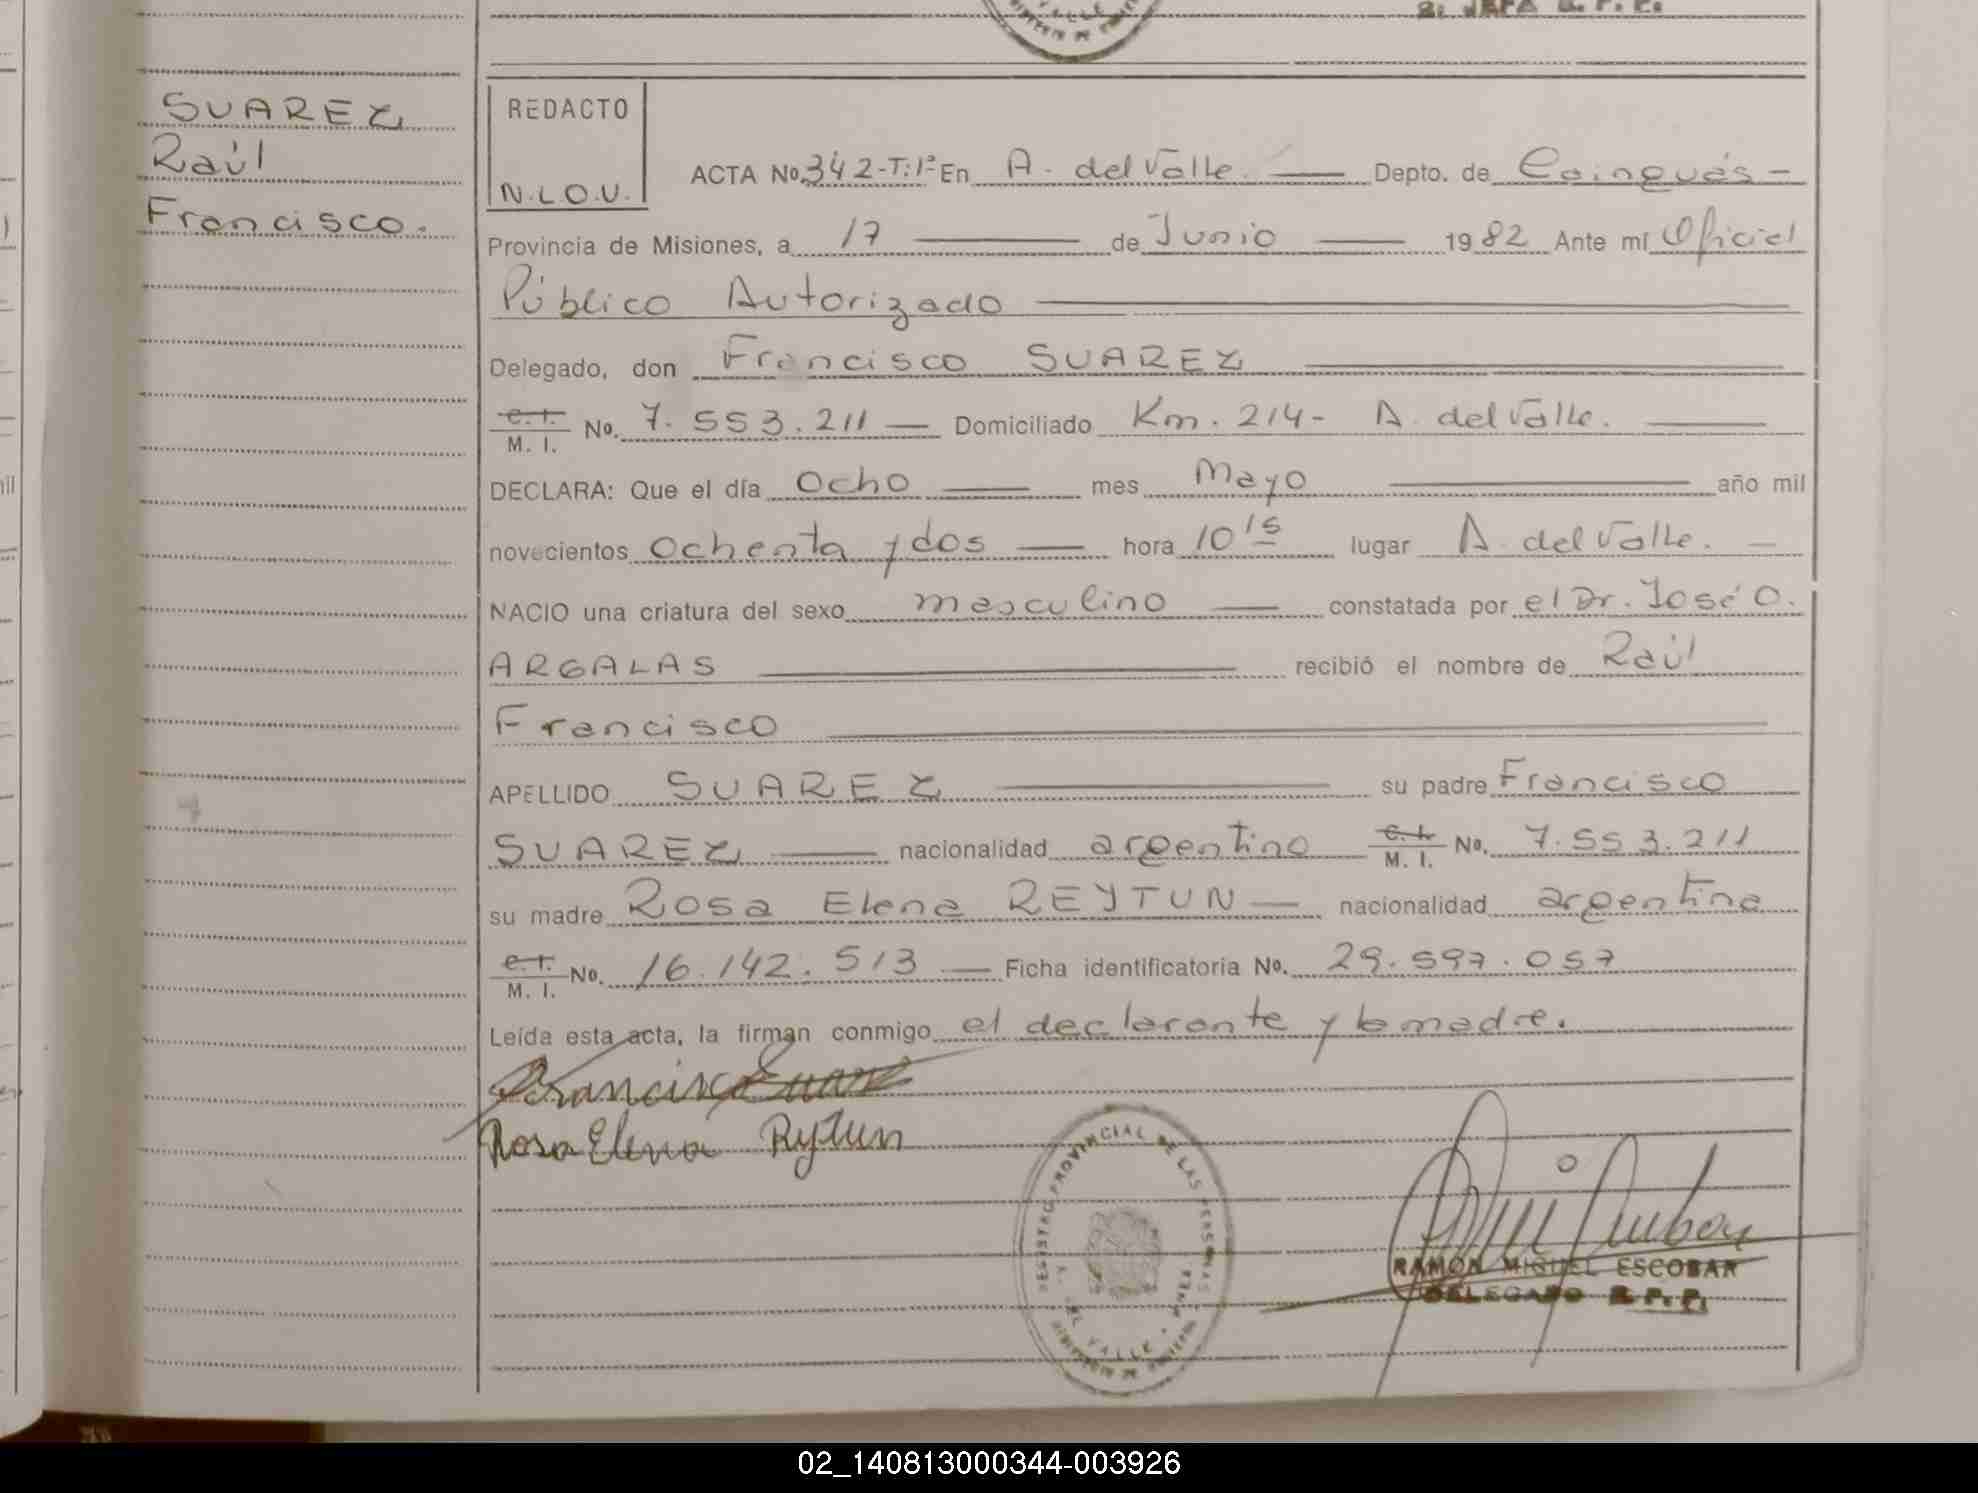 B. JEFA R. P. P.
VALLE
SUAREZ
Raúl
Francisco.
REDACTO
N.L.O.U.
ACTA No. 342-T:1º En A. del Valle. Depto. de Cainguás-
Provincia de Misiones, a 17 de Junio 1982 Ante mí Oficial
Público Autorizado
Delegado, don Francisco SUAREZ
C. I.
M. I. No. 7.553.211 Domiciliado Km. 214- A. del Valle.
DECLARA: Que el día Ocho mes Mayo año mil
novecientos Ochenta y dos hora 10 15 lugar A. del Valle.
NACIO una criatura del sexo masculino constatada por el Dr. José O.
ARGALAS recibió el nombre de Raúl
Francisco
APELLIDO SUAREZ su padre Francisco
SUAREZ nacionalidad argentino C. I. M. I. No. 7.553.211
su madre Rosa Elena REYTUN nacionalidad argentina
C. I.
M. I. No. 16.142.513 Ficha identificatoria No. 29.597.057
Leída esta acta, la firman conmigo el declarante y la madre.
Francisco Suarez
Rosa Elena Rytun
REGISTRO PROVINCIAL DE LAS PERSONAS
DEL VALLE
RAMON MIGUEL ESCOBAR
DELEGADO R. P. P.
02_140813000344-003926